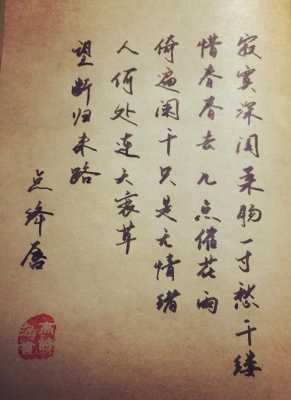 寂寞深闺柔肠一寸愁千缕
惜春春去几点催花雨
倚遍阑干只是无情绪
人何处连天衰草
望断归来路
点绛唇